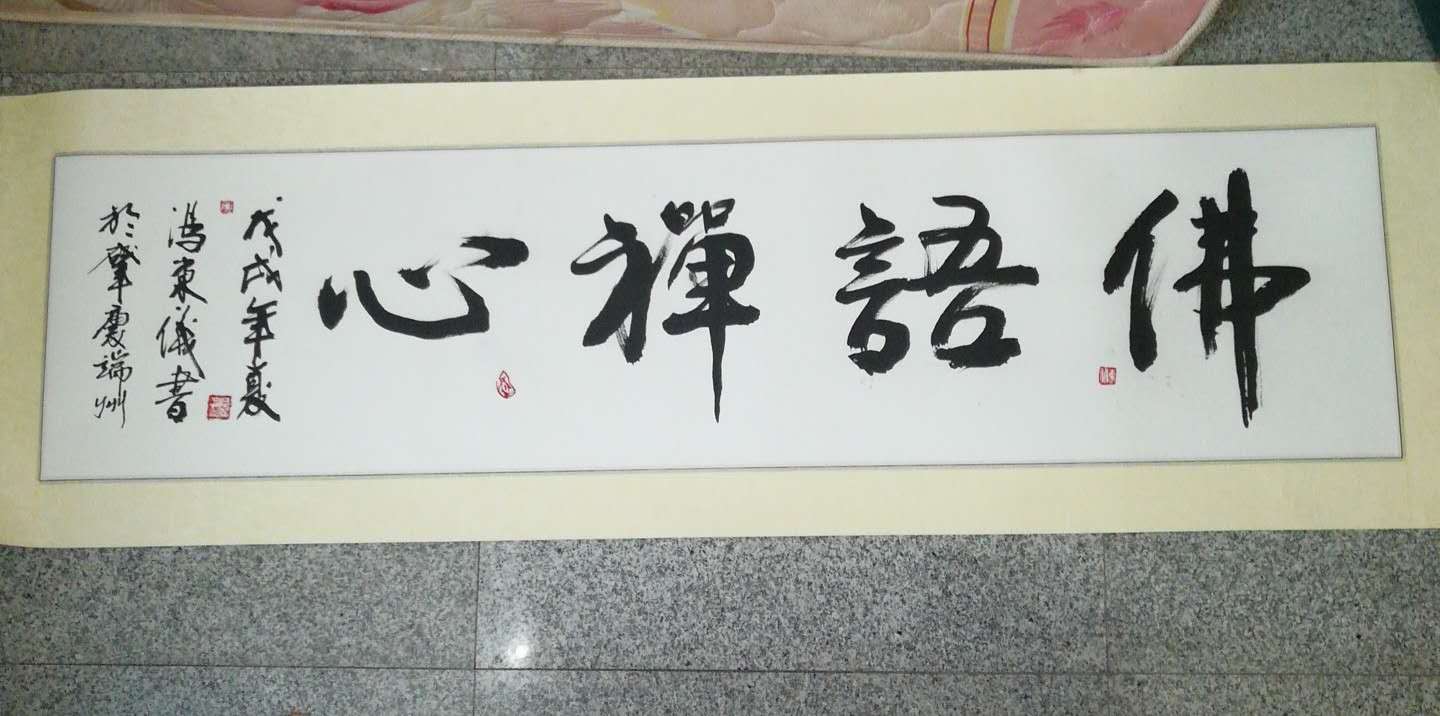 佛語禪心
戊戌年夏
馮東儀書
於肇慶端州